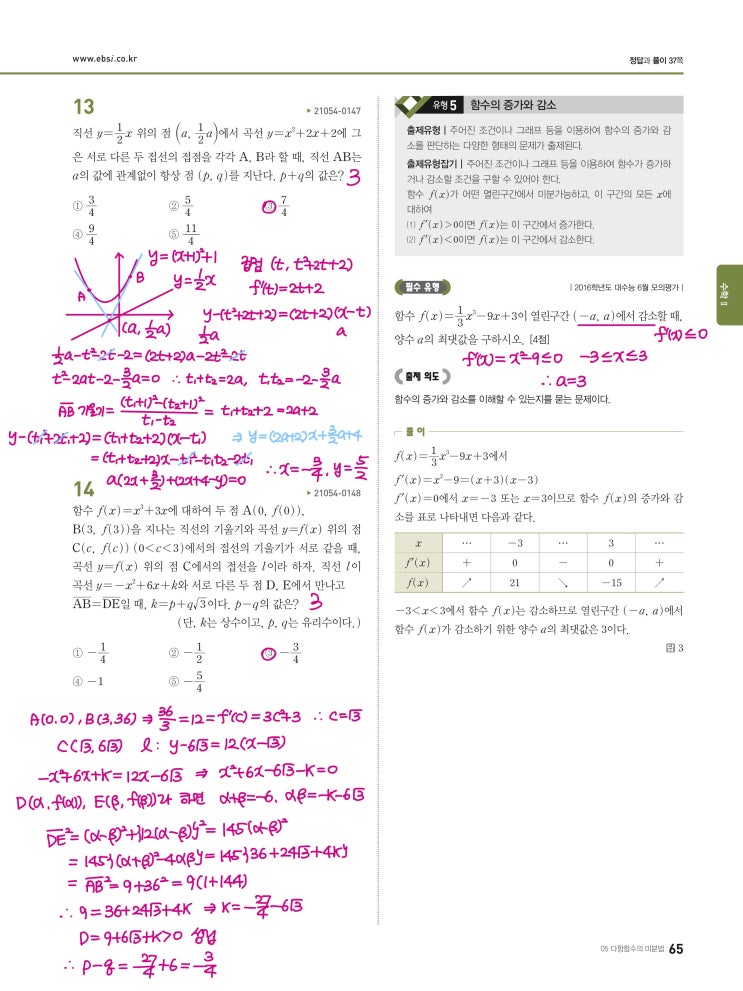 www.ebsi.co.kr
정답과 풀이 37쪽
13
▶ 21054-0147
직선 y=1/2x 위의 점 (a, 1/2a)에서 곡선 y=x²+2x+2에 그
은 서로 다른 두 접선의 접점을 각각 A, B라 할 때, 직선 AB는
a의 값에 관계없이 항상 점 (p, q)를 지난다. p+q의 값은? 3
① 3/4 ② 5/4 ③ 7/4
④ 9/4 ⑤ 11/4
y=(x+1)²+1
y=1/2x
A
B
(a, 1/2a)
접점 (t, t²+2t+2)
f'(t)=2t+2
y-(t²+2t+2)=(2t+2)(x-t)
1/2a a
1/2a-t²-2t-2=(2t+2)a-2t²-2t
t²-2at-2-3/2a=0 ∴ t₁+t₂=2a, t₁t₂=-2-3/2a
AB 기울기= (t₁+1)²-(t₂+1)²/t₁-t₂ = t₁+t₂+2=2a+2
y-(t₁²+2t₁+2)=(t₁+t₂+2)(x-t₁) ⇒ y=(2a+2)x+3/2a+4
=(t₁+t₂+2)x-t₁²-t₁t₂-2t₁
a(2x+3/2)+(2x+4-y)=0
∴ x=-3/4, y=5/2
14
▶ 21054-0148
함수 f(x)=x³+3x에 대하여 두 점 A(0, f(0)),
B(3, f(3))을 지나는 직선의 기울기와 곡선 y=f(x) 위의 점
C(c, f(c)) (0<c<3)에서의 접선의 기울기가 서로 같을 때,
곡선 y=f(x) 위의 점 C에서의 접선을 l이라 하자. 직선 l이
곡선 y=-x²+6x+k와 서로 다른 두 점 D, E에서 만나고
AB=DE일 때, k=p+q√3이다. p-q의 값은? 3
(단, k는 상수이고, p, q는 유리수이다.)
① -1/4 ② -1/2 ③ -3/4
④ -1 ⑤ -5/4
A(0,0), B(3,36) ⇒ 36/3=12=f'(c)=3c²+3 ∴ c=√3
C(√3, 6√3) l: y-6√3=12(x-√3)
-x²+6x+k=12x-6√3 ⇒ x²+6x-6√3-k=0
D(α, f(α)), E(β, f(β))라 하면 α+β=-6, αβ=-k-6√3
DE²=(α-β)²+{12(α-β)}²=145(α-β)²
=145{(α+β)²-4αβ}=145{36+24√3+4k}
=AB²=9+36²=9(1+144)
∴ 9=36+24√3+4k ⇒ k=-27/4-6√3
D=9+6√3+k>0 성립
∴ p-q=-27/4+6=-3/4
유형 5 함수의 증가와 감소
출제유형 | 주어진 조건이나 그래프 등을 이용하여 함수의 증가와 감
소를 판단하는 다양한 형태의 문제가 출제된다.
출제유형잡기 | 주어진 조건이나 그래프 등을 이용하여 함수가 증가하
거나 감소할 조건을 구할 수 있어야 한다.
함수 f(x)가 어떤 열린구간에서 미분가능하고, 이 구간의 모든 x에
대하여
(1) f'(x)>0이면 f(x)는 이 구간에서 증가한다.
(2) f'(x)<0이면 f(x)는 이 구간에서 감소한다.
필수 유형
| 2016학년도 대수능 6월 모의평가 |
함수 f(x)=1/3x³-9x+3이 열린구간 (-a, a)에서 감소할 때,
f'(x)≤0
양수 a의 최댓값을 구하시오. [4점]
f'(x)=x²-9≤0 -3≤x≤3
∴ a=3
출제 의도
함수의 증가와 감소를 이해할 수 있는지를 묻는 문제이다.
풀이
f(x)=1/3x³-9x+3에서
f'(x)=x²-9=(x+3)(x-3)
f'(x)=0에서 x=-3 또는 x=3이므로 함수 f(x)의 증가와 감
소를 표로 나타내면 다음과 같다.
x … -3 … 3 …
f'(x) + 0 - 0 +
f(x) ↗ 21 ↘ -15 ↗
-3<x<3에서 함수 f(x)는 감소하므로 열린구간 (-a, a)에서
함수 f(x)가 감소하기 위한 양수 a의 최댓값은 3이다.
답 3
수학 Ⅱ
05 다항함수의 미분법 65